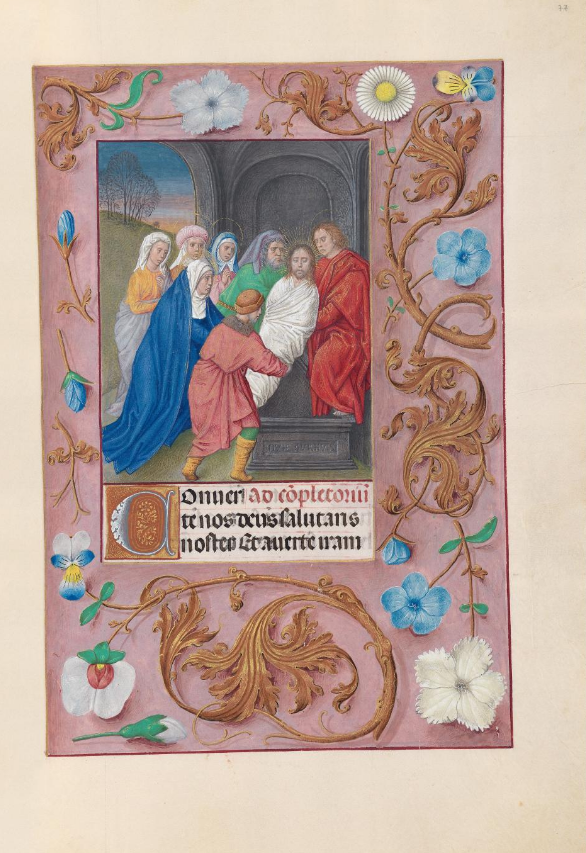 Conuer Ad cõpletoriũ
te nos deus salutaris
noster Et auerte iram